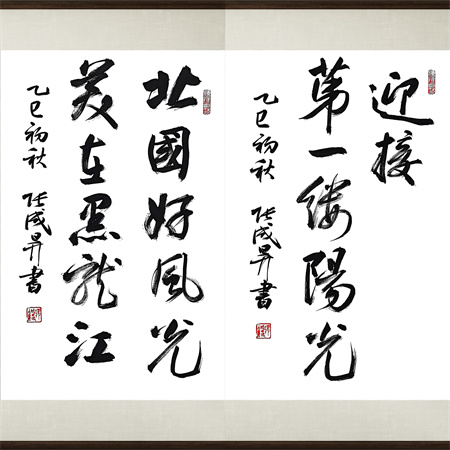 迎接
第一缕陽光
乙巳初秋 任成昇書
北國好風光
美在黑龍江
乙巳初秋 任成昇書